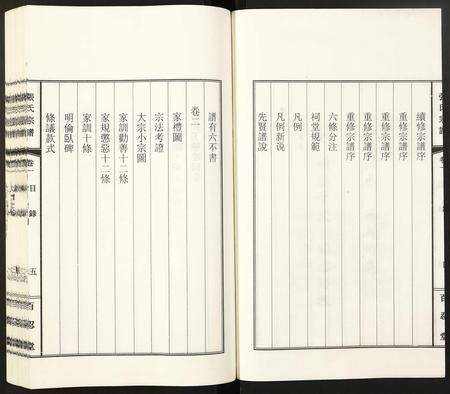 續修宗譜序
重修宗譜序
重修宗譜序
重修宗譜序
重修宗譜序
六條分注
祠堂規範
凡例
凡例新說
先賢譜說
譜有六不書
卷二
家禮圖
宗法考證
大宗小宗圖
家訓勸善十二條
家規懲惡十二條
家訓十條
明倫臥碑
條議款式
張氏宗譜
卷一
目錄
五
百忍堂